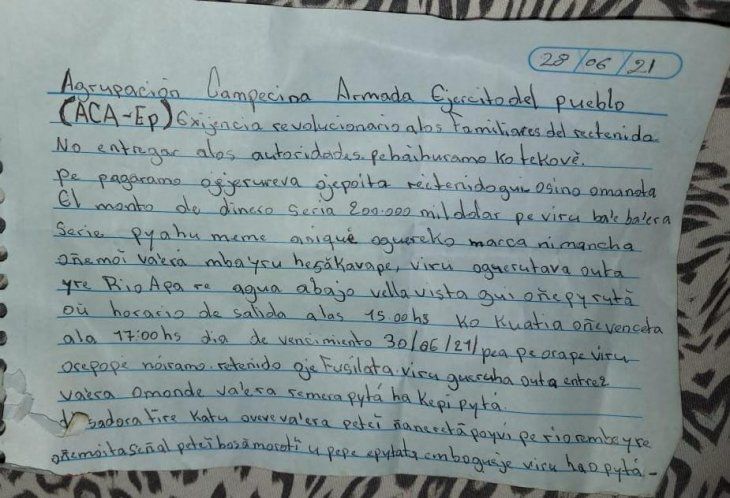 28/06/21
Agrupación Campecina Armada Ejercito del pueblo
(ACA-Ep) Exijencia revolucionario alos Familiares del rectenida
No entregar alos autoridades pehaihuramo ko tekovè.
pe pagáramo ojejerureva ojepoita rectenidogui osino omanota
El monto de dinero seria 200.000 mil dolar pe viru ba'e ba'era
Serie pyahu meme anique oguereko marca ni mancha
oñemoi va'erá mbayru hesãkavape, viru oguerutava outa
yre Rio Apa re agua abajo vella vista gui oñepyrutã
où horario de salida alas 15.00hs Ko Kuatia oñevenceta
ala 17:00hs dia de vencimiento 30/06/21/ pea pe orape viru
orepope nóiramo retenido oje Fusilata viru gueruha outa entrez
va'era omonde va'era remera pytá ha kepi pytá.
tire katu oveve va'era peteĩ ñanerctã poyvi pe rio rembeyre
oñemoita señal peteĩ bosà morotĩ u pepe epytata embogueje viru ha o pytá-